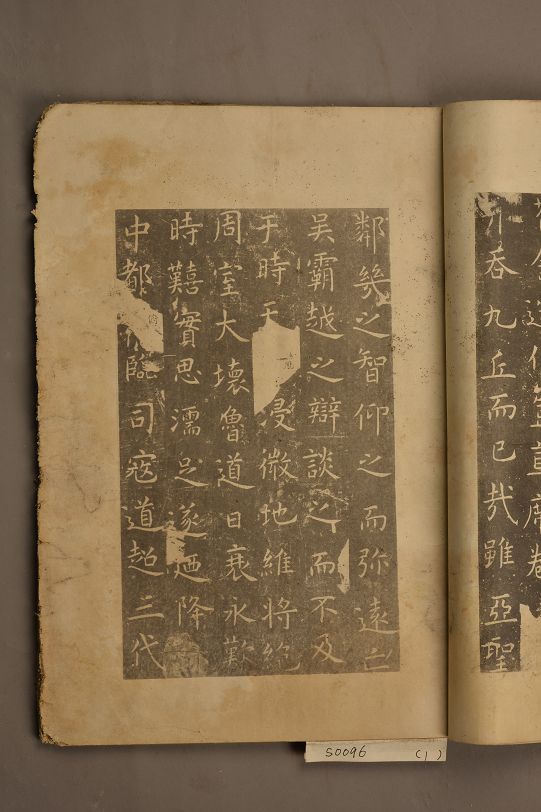 豈直席卷
吞九丘而已哉雖亞聖
鄰幾之智仰之而弥遠亡
吳霸越之辯談之而不及
于時天浸微地維將絕
周室大壞魯道日衰永歎
時囏實思濡足遂迺降
中都俯臨司寇道超三代
S0096 (1)